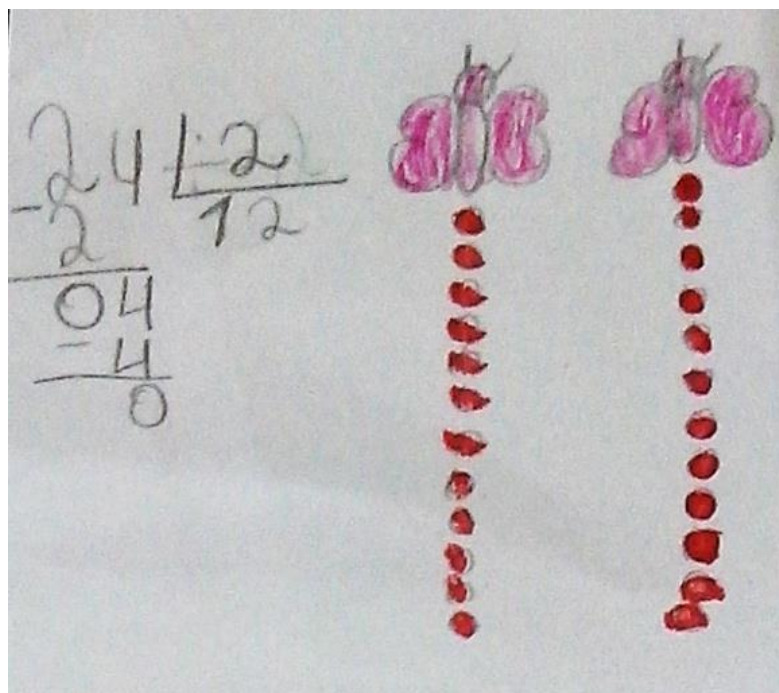 24 2
- 12
2
04
- 4
0